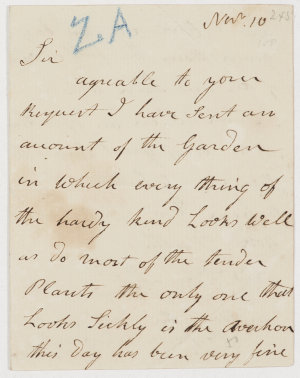 ZA
Novr. 10
Sir
agreable to your
Request I have sent an
amount of the Garden
in which every thing of
the hardy kind Looks well
as do most of the tender
Plants the only one that
Looks Sickly is the
this day has been very fine